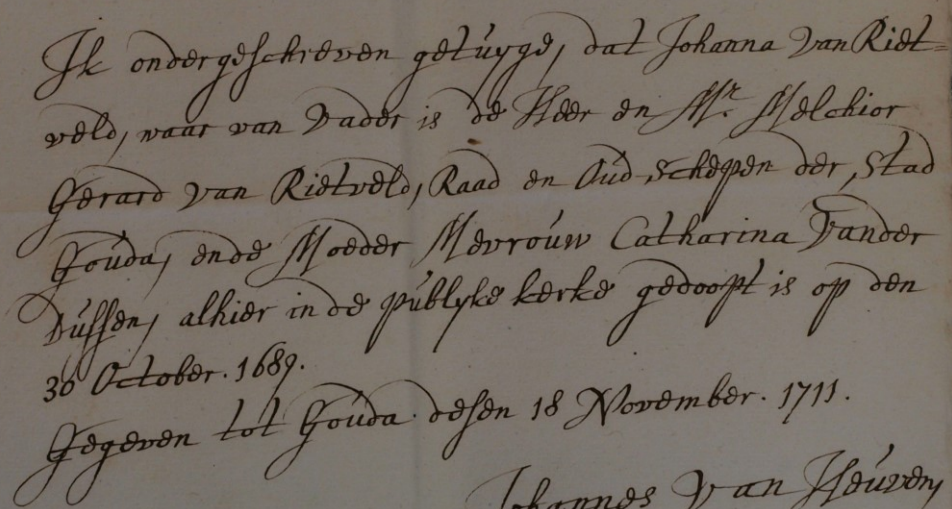 Ik ondergeschreven getuyge, dat Johanna van Riet=
veld, waar van Vader is de Heer en Mr. Melchior
Gerard van Rietveld, Raad en Oud Schepen der Stad
Gouda, ende Moeder Mevrouw Catharina Vander
Dussen, alhier in de publyke kerke gedoopt is op den
30 October. 1689.
Gegeven tot Gouda desen 18 November. 1711.
Johannes Van Heuven,